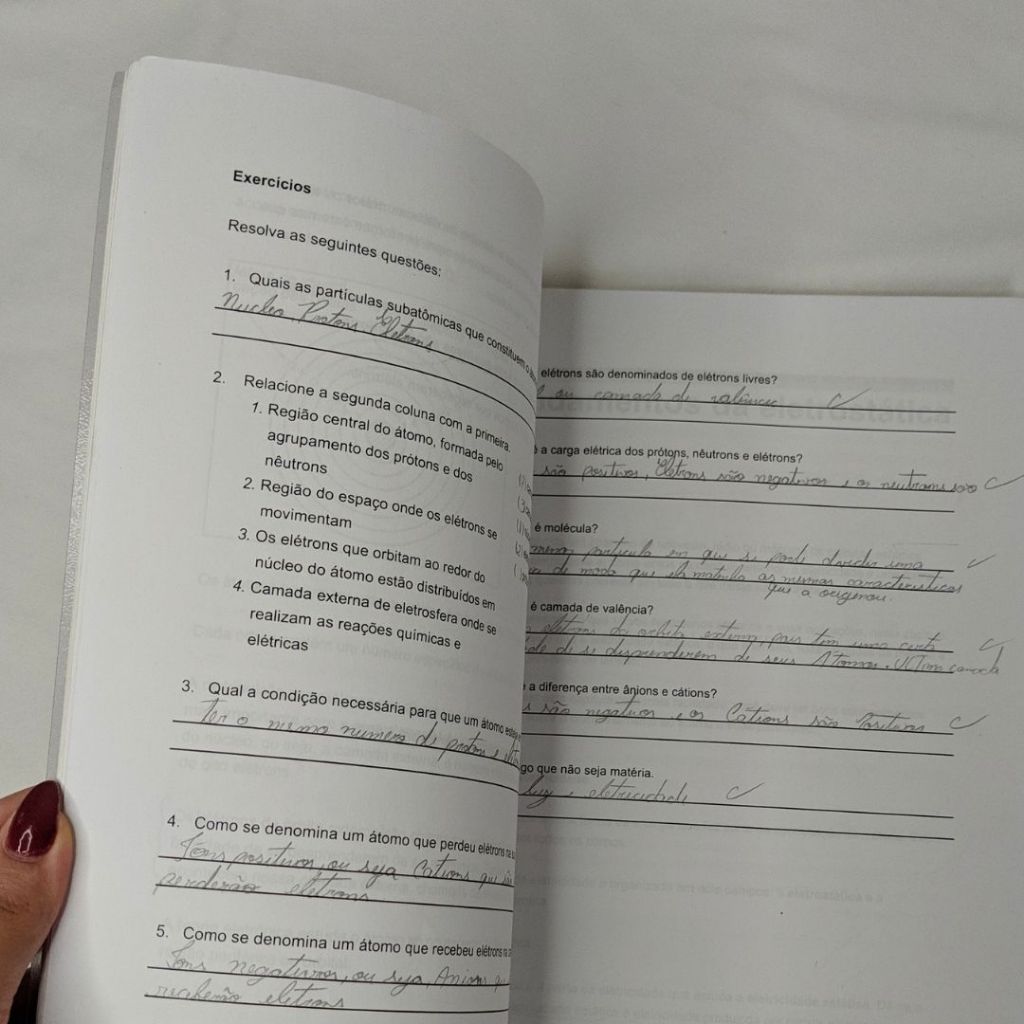 Exercícios
Resolva as seguintes questões:
1. Quais as partículas subatômicas que constituem o
Nucleo, Protons, Eletrons
2. Relacione a segunda coluna com a primeira.
1. Região central do átomo, formada pelo
agrupamento dos prótons e dos
nêutrons
2. Região do espaço onde os elétrons se
movimentam
3. Os elétrons que orbitam ao redor do
núcleo do átomo estão distribuídos em
4. Camada externa de eletrosfera onde se
realizam as reações químicas e
elétricas
3. Qual a condição necessária para que um átomo
ter o mesmo numero de protons e
4. Como se denomina um átomo que perdeu elétrons na
Íons positivos, ou seja Cations que
perderão eletrons
5. Como se denomina um átomo que recebeu elétrons na
Íons negativos, ou seja, Anions
receberão eletrons
elétrons são denominados de elétrons livres?
ou camada de valência
é a carga elétrica dos prótons, nêutrons e elétrons?
são positivos, Eletrons são negativos e os neutrons são
é molécula?
particula em que se pode dividir uma
de modo que ela mantenha as mesmas caracteristicas
que a originou.
é camada de valência?
eletrons da orbita externa, pois tem uma certa
de se desprenderem de seus Atomos
a diferença entre ânions e cátions?
são negativos, e os Cátions são Positivos
go que não seja matéria.
luz, eletricidade